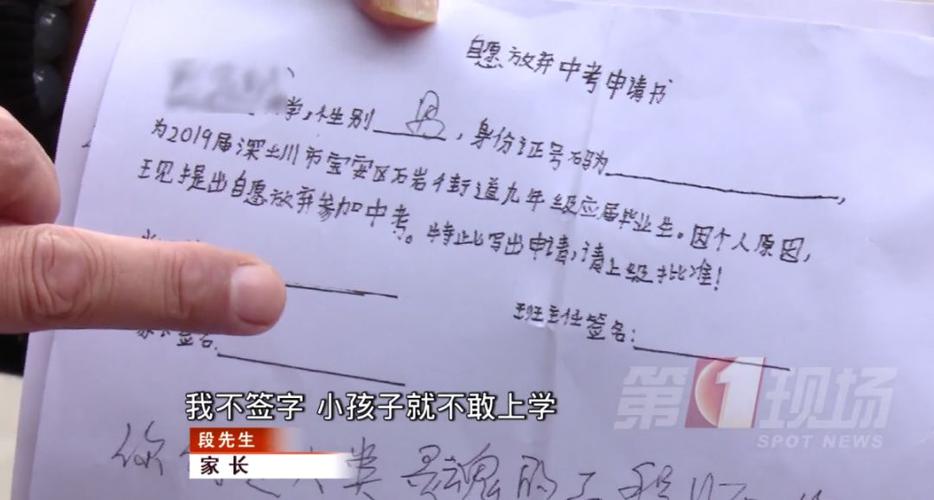 自愿放弃中考申请书
学,性别 男 ,身份证号码为 ,
为2019届深圳市宝安区石岩街道九年级应届毕业生。因个人原因,
现提出自愿放弃参加中考。特此写出申请,请上级批准!
班主任签名:
签名:
第1现场
SPOT NEWS
我不签字 小孩子就不敢上学
段先生
家长
你 类灵魂的工程师